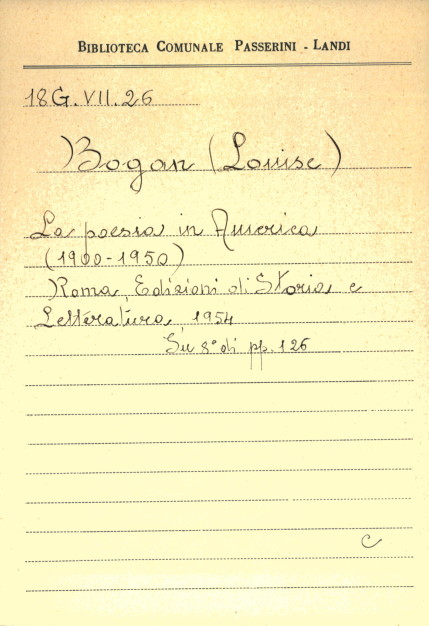 BIBLIOTECA COMUNALE PASSERINI - LANDI
18 G. VII. 26
Bogan (Louise)
La poesia in America
(1900-1950)
Roma, Edizioni di Storia e
Letteratura, 1954
In 8° di pp. 126
C